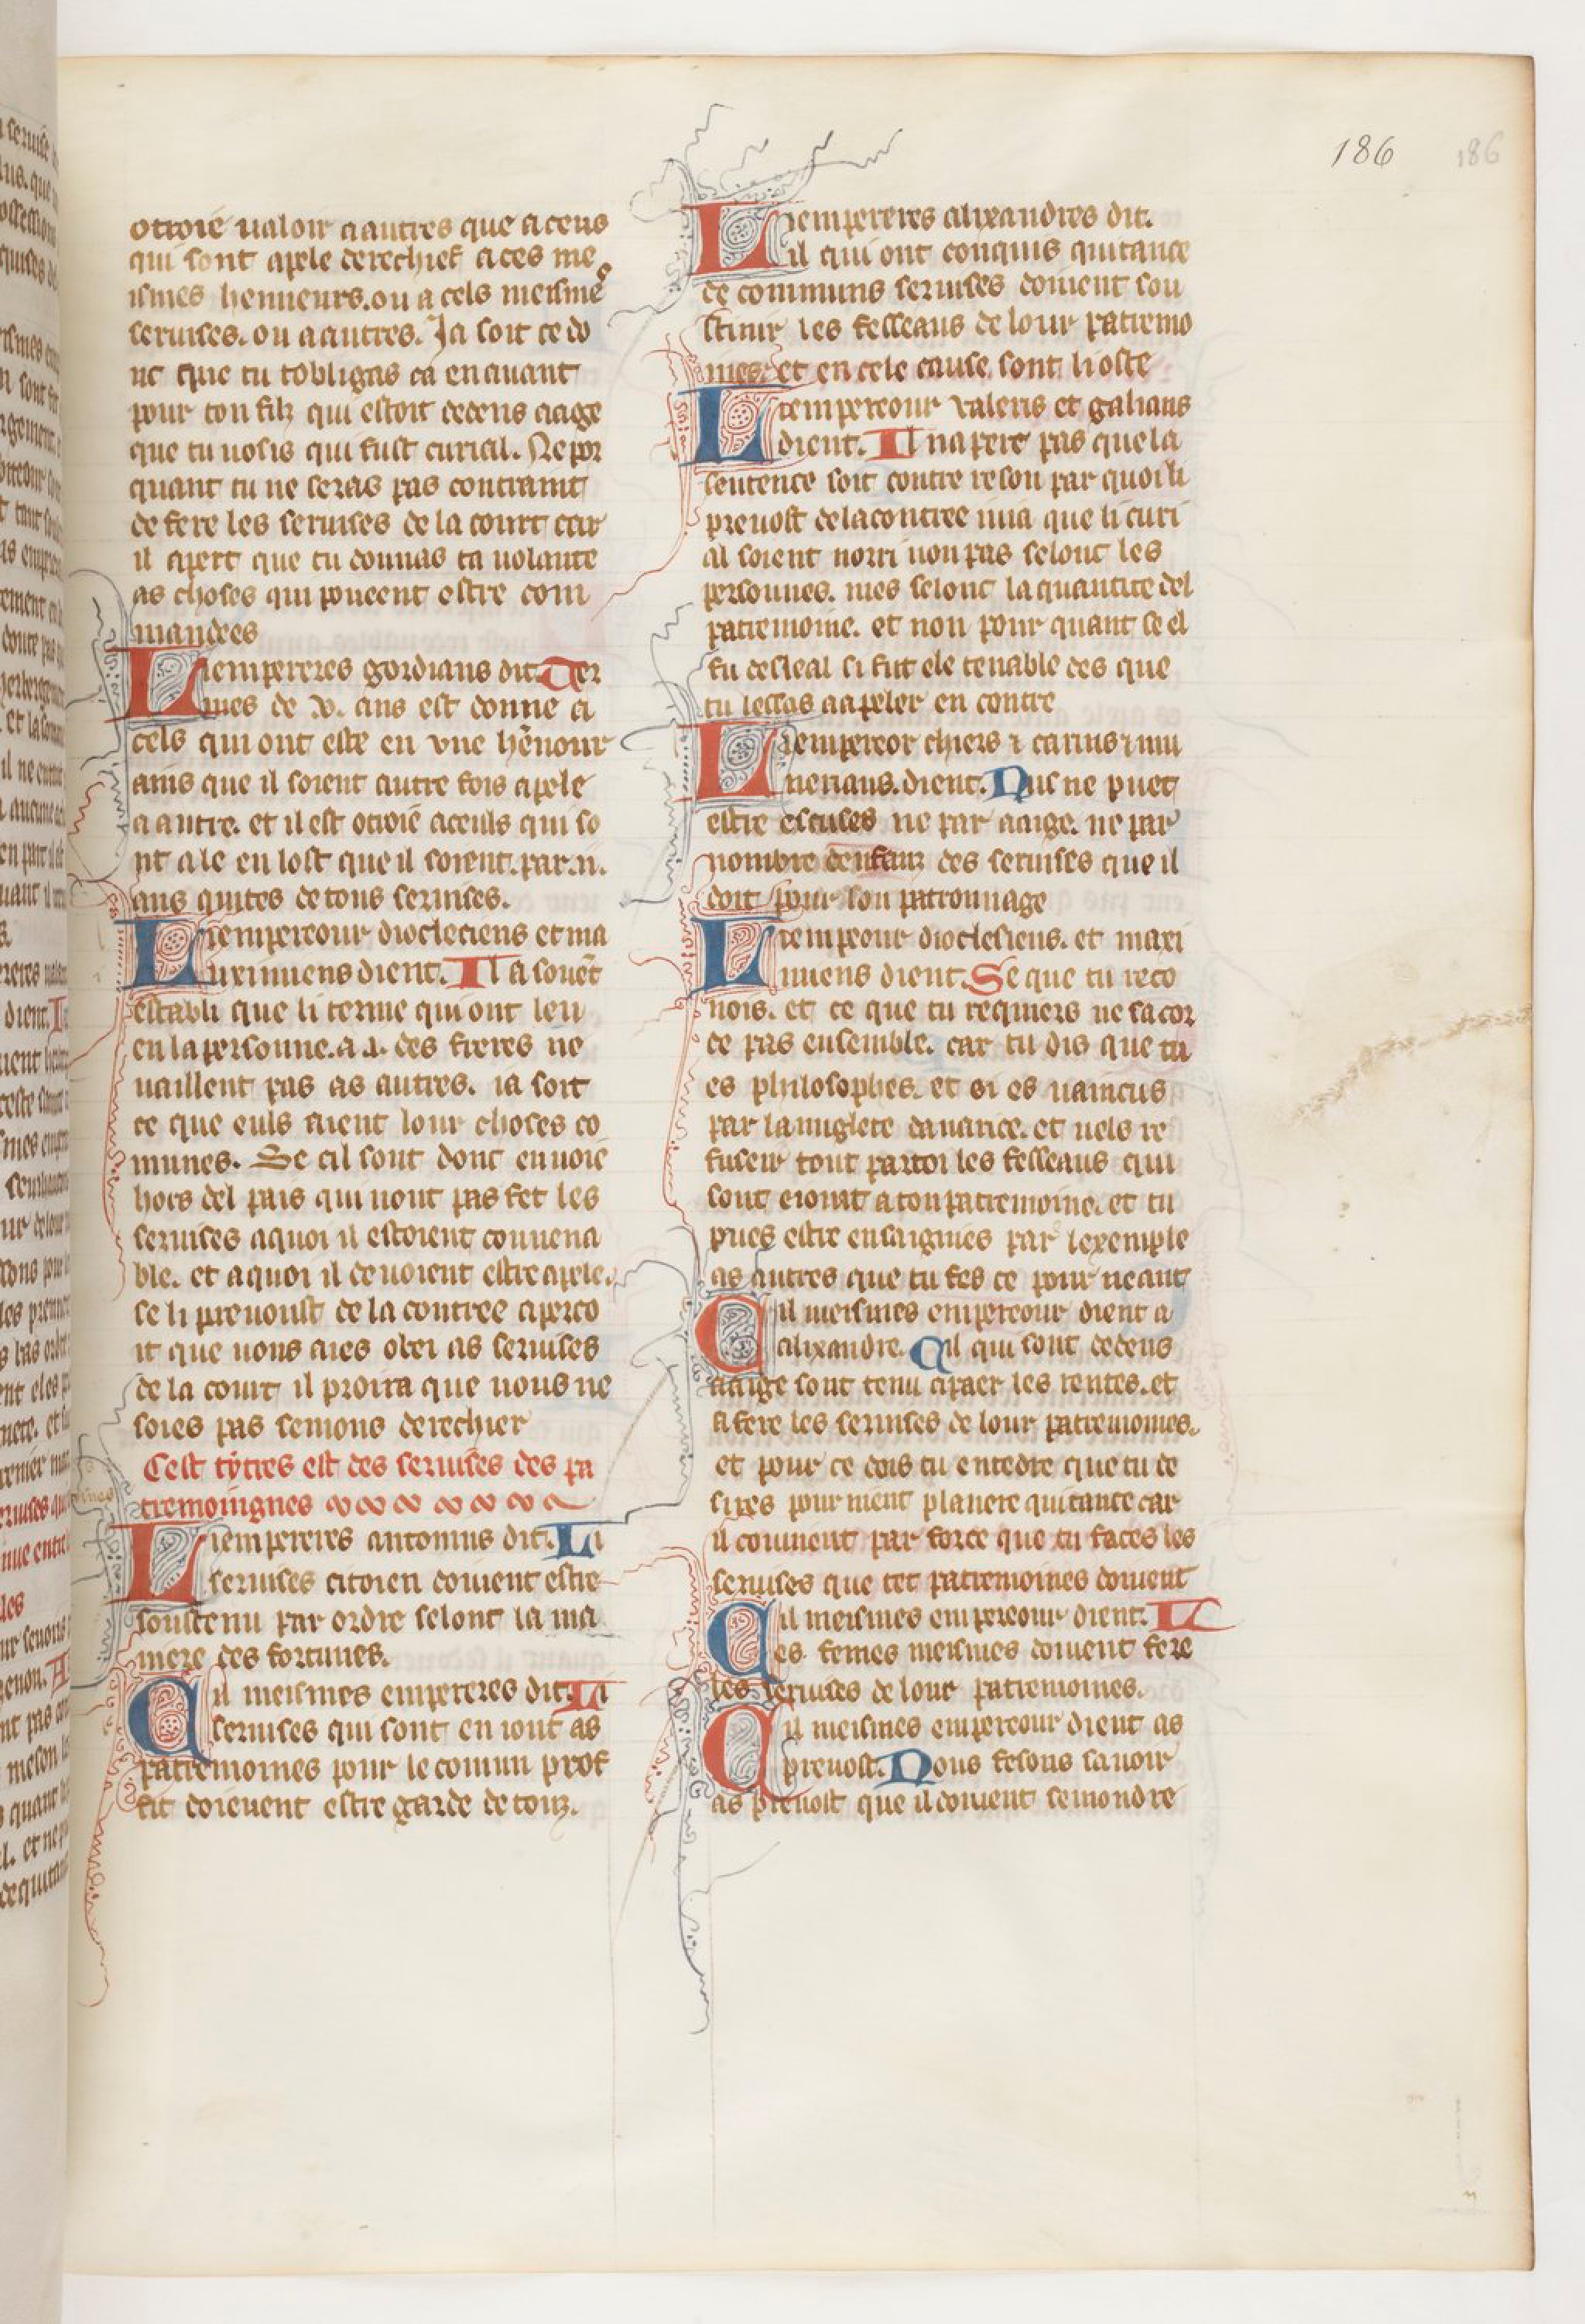 186 186
otroie ualoir a autres que a ceus
qui sont apele derechief a ces me
ismes henneurs. ou a cels meisme
seruises. ou a autres. Ja soit ce do
nc que tu tobligas ca en auant
pour ton filz qui estoit dedens aage
que tu uosis qui fust curial. Ne por
quant tu ne seras pas contraint
de fere les seruises de la court car
il apert que tu donnas ta uolante
as choses qui poueent estre com
mandees
Liempereres gordians dit. Ter
mes de .v. ans est donne a
cels qui ont este en vne hēnour
ains que il soient autre fois apele
a autre. et il est otroie a ceuls qui so
nt ale en lost que il soient. par .ii.
ans quites de tous seruises.
Li empereour diocleciens et ma
ximiens dient. Il a souēt
establi que li terme qui ont leu
en la personne. a .i. des freres ne
uaillent pas as autres. ia soit
ce que euls aient lour choses co
munes. Se cil sont donc enuoie
hors del pais qui nont pas fet les
seruises a quoi il estoient conuena
ble. et a quoi il deuoient estre apele.
se li preuoust de la contree aperco
it que uous aies obei as seruises
de la court il proira que uous ne
soies pas semons derechief
Cest tytres est des seruises des pa
tremoingnes
Liempereres antonius dit. Li
seruises citoien doiuent estre
soustenu par ordre selonc la ma
niere des fortunes.
Cil meismes empereres dit. Li
seruises qui sont en iont as
patremoines pour le comun prof
fit doieuent estre garde de touz.
Liempereres alixandres dit.
Cil qui ont conquis quitance
de communs seruises doiuent sou
stenir les fesseaus de lour patremo
nies. et en cele cause sont li oste
Li empereour valeris et galians
dient. Il napere pas que la
sentence soit contre reson par quoi li
preuost de la contree iuia que li curi
al soient norri non pas selonc les
personnes. mes selonc la quantite del
patremoine. et non pour quant se el
fu desleal si fut ele tenable des que
tu lessas a apeler en contre
Li empereor chiers ⁊ carins ⁊ nu
merians. dient. Nus ne puet
estre escuses ne par aaige. ne par
nombre denfanz des seruises que il
doit pour son patronnage
Li emp̄eour dioclesiens. et maxi
miens dient. Se que tu reco
nois. et ce que tu requiers ne sacor
de pas ensemble. car tu dis que tu
es philosophes. et si es uaincus
par lauuglete dauarice. et uels re
fuser tout par toi les fesseaus qui
sont eiont a ton patremoine. et tu
pues estre ensaignies par lexemple
as autres que tu fes ce pour neant
Cil meismes empereour dient a
alixandre. Cil qui sont dedens
aaige sont tenu a paer les rentes. et
a fere les seruises de lour patremoines.
et pour ce dois tu entēdre que tu de
sires pour nient planere quitance car
il conuient par force que tu faces les
seruises que tet patremoines doiuent
Cil meismes empereour dient. L
es femes meismes doiuent fere
les seruises de lour patremoines.
Cil meismes empereour dient as
preuost. Nous fesons sauoir
as preuost que il doiuent semondre